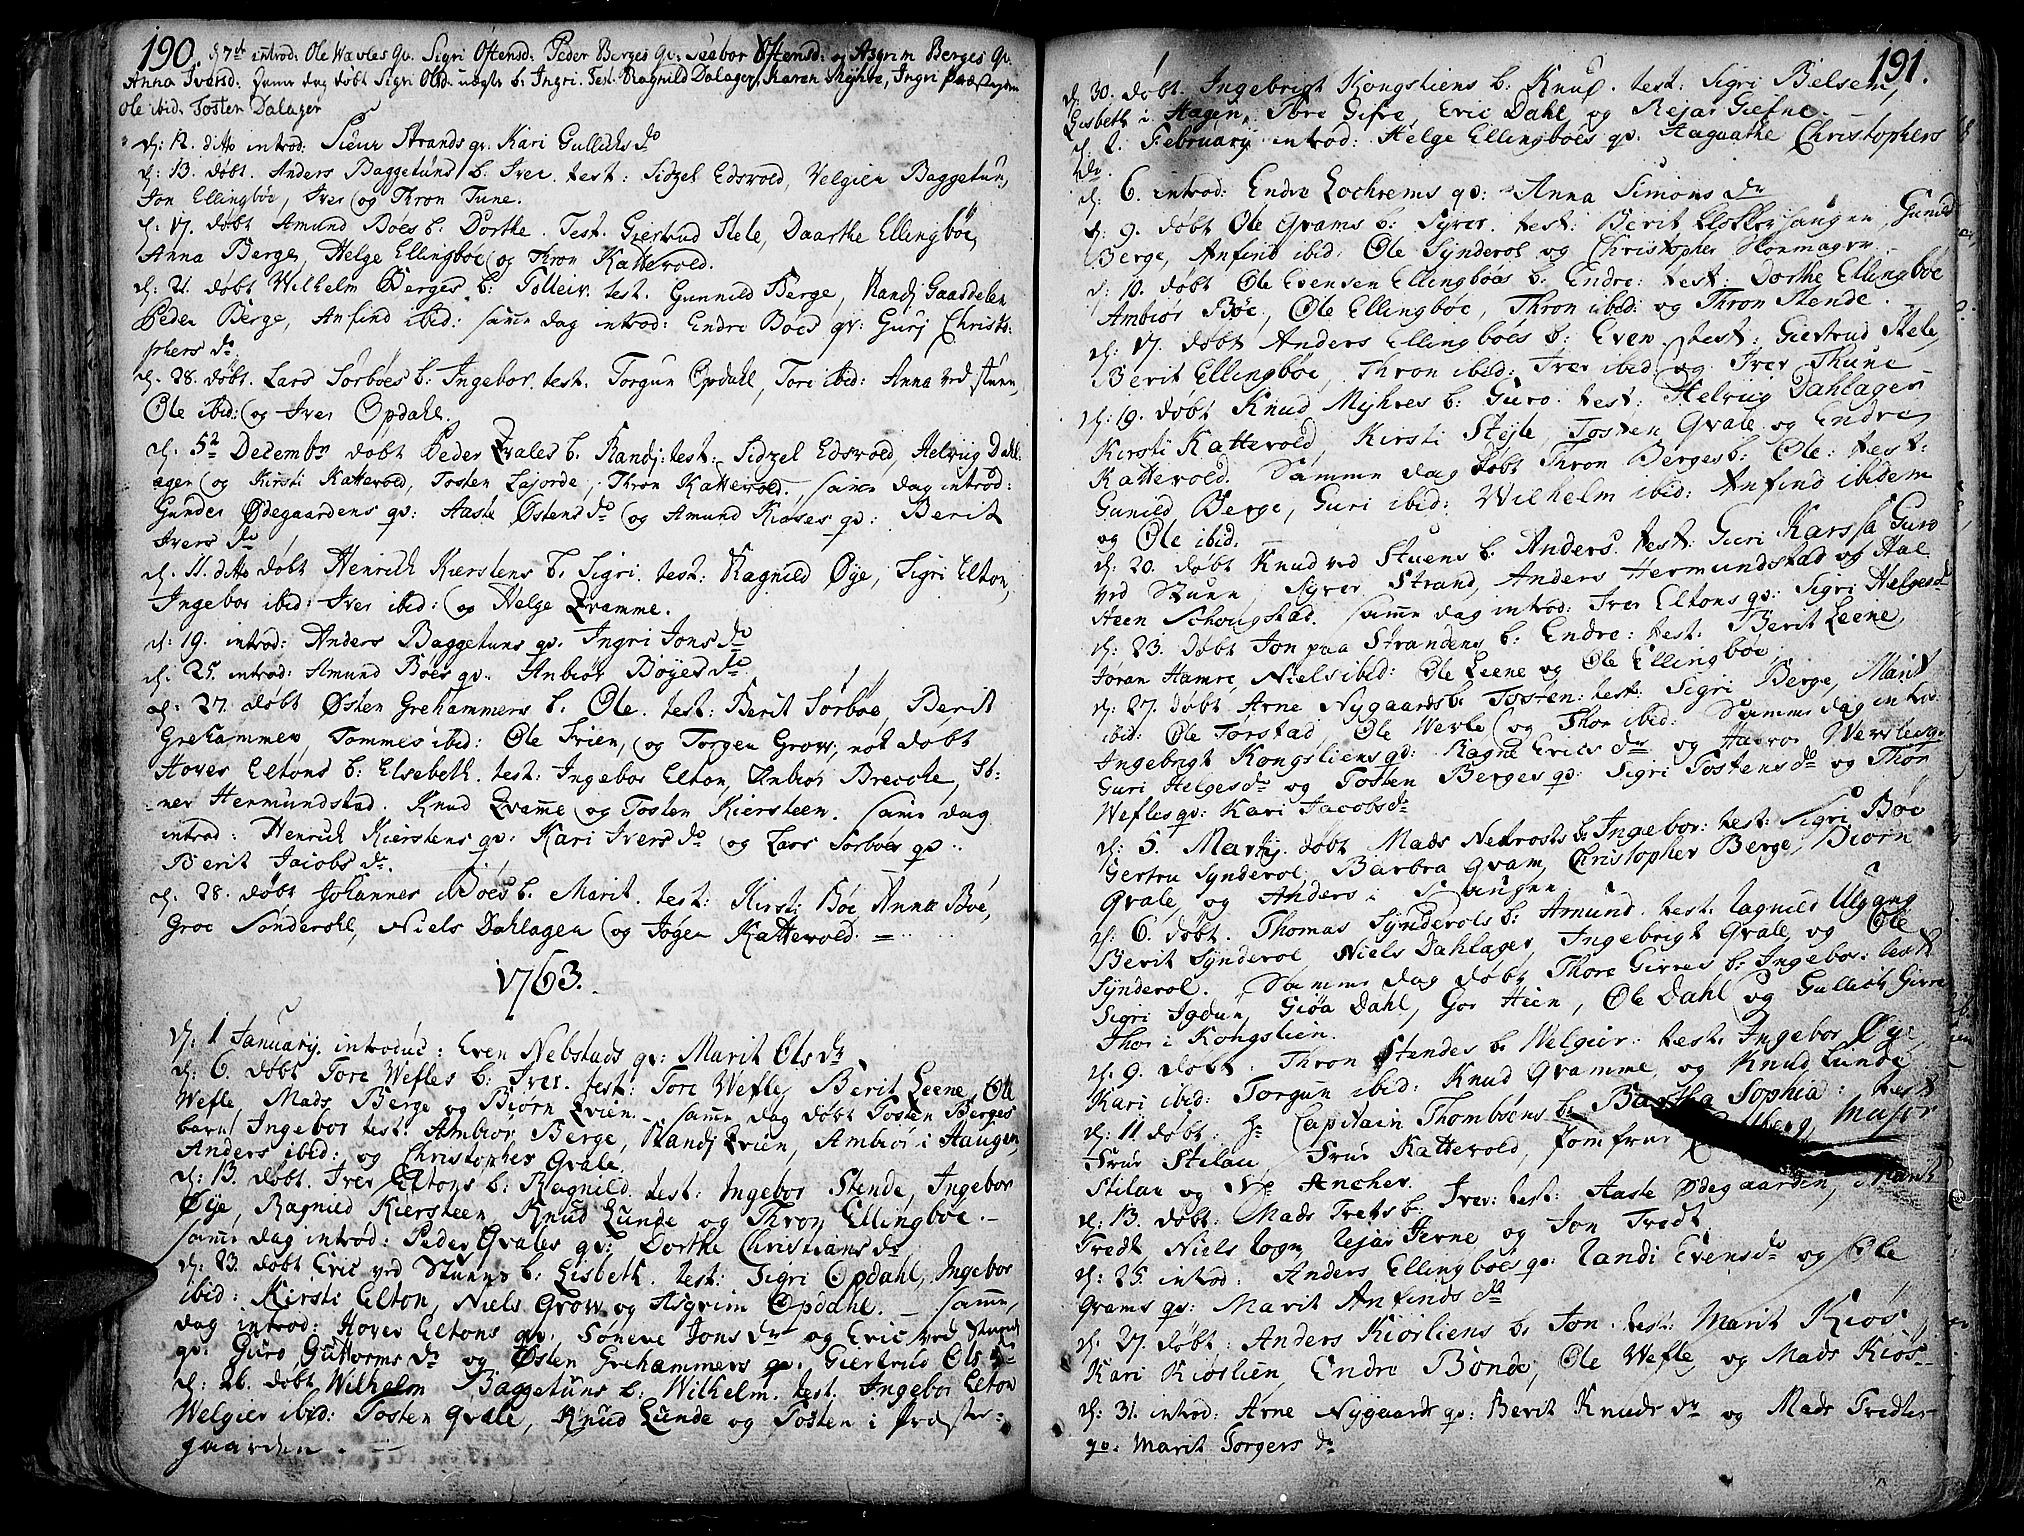 190. d. 7de introd: Ole Wavles qv. Sigri Østensd: Peder Berges qv: Siabor Østensd: og Asgrim Berges qv.
Anna Iversd: Samme dag døbt Sigri Olsd: uægte b: Ingri. Test: Ragnild Dalager, Karen Myhre, Ingri Præstegden
Ole ibid. Tosten Dalager
d: 12. ditto introd: Siur Strands qv. Kari Gullichsdr
d: 13. døbt. Anders Baggetuns b. Iver. test: Sidzel Edsvold, Velgier Baggetun,
Jon Ellingbøe, Iver (og Thron Tune.
d: 17. døbt Amund Bøes b: Dorthe. Test. Giertrud Stele, Daarthe Ellingbøe,
Anna Berge, Helge Ellingbøe (og Thron Kattevold.
d: 21. døbt Wilhelm Berges b: Tolleiv. test. Gunnild Berge, Randj Gaasdelen
Peder Berge, Anfind ibid: samme dag introd: Endre Bøes qv: Gurj Christo:
phersdr
d. 28. døbt. Lars Sørbøes b: Ingebor. test: Torgun Opdahl, Tore ibid: Anna ved stuen,
Ole ibid: (og Iver Opdahl.
d. 5te Decembr døbt Peder Qvales b. Randj: test: Sidzel Edsvold, Helvig Dahl:
agen (og Kirsti Kattevold, Tosten Lajorde, Thron Kattevold. samme dag introd:
Gunder Ødegaardens qv: Aaste Østensdr (og Amund Kiøses qv: Berit
Iversdr
d. 11. ditto døbt Henrich Kierstens b. Sigri. test: Ragnild Øye, Sigri Elton,
Ingebor ibid: Iver ibid: (og Helge Qvamme.
d: 19. introd: Anders Baggetuns qv. Ingri Jonsdr
d. 25. introd: Amund Bøes qv. Anbiør Boyesdr
d: 27. døbt Østen Grehammers b. Ole. test: Berit Sørbøe, Berit
Grehammer, Tommes ibid: Ole Frien, (og Torgen Grow; not døbt
Hover Eltons b: Elsebeth. test: Ingebor Elton, Anbiør Breocke, Si:
ner Hermundstad. Knud Qvame (og Tosten Kiersteen. samme dag
introd: Henrich Kierstens qv: Kari Iversdr (og Lars Sørbøes qv:
Berit Jacobsdr
d. 28. døbt Johannes Bøes b. Marit. test: Kirsti Bøe, Anna Bøe,
Groe Sønderohl, Niels Dahlagen (og Jøgen Kattevold. =
1763.
d: 1 January. introduc: Even Nebstads qv: Marit Olsdr
d: 6. døbt Tore Wefles b: Iver. test: Tore Wefle, Berit Leene, Ole
Wefle, Mads Berge og Biørn Qvien. – samme dag døbt Tosten Berges
barn Ingebor test: Ambior Berge, Randj Qvien, Ambior i Haugen,
Anders ibid: og Christopher Qvale.
d: 13. døbt. Iver Eltons b: Ragnild. test: Ingebor Stende, Ingebor
Øye, Ragnild Kiersteen, Knud Lunde og Thron Ellingbøe. –
samme dag introd: Peder Qvales qv: Dorthe Christiansdr
d: 23. døbt Eric ved Stuens b: Lisbeth. test: Sigri Opdahl, Ingebor
ibid: Kirsti Elton, Niels Grow og Asgrim Opdahl. – samme
dag introd: Hover Eltons qv. Søneve Jonsdr og Eric ved Stuens
qv: Guro Guttormsdr og Østen Grehammers qv: Giertrud Olsdr
d: 26. døbt Wilhelm Baggetuns b: Wilhelm. test. Ingebor Elton
Welgier ibid: Tosten Qvale, Knud Lunde og Tosten i Præste:
gaarden. –
191.
d. 30. døbt. Ingebrigt Kongsliens b. Knut. test: Sigri Bielsem,
Lisbeth i Hagen, Tore Gifre, Eric Dahl og Rejar Giefne
d: 2. February introd: Helge Ellingbøes qv: Aagaathe Christophers
dr.
d: 6. introd: Endre Lochrems qv: Anna Simonsdr
d: 9. døbt Ole Qvams b: Syver. test: Berit Klokkerhaugen, Gunild
Berge, Anfind ibid: Ole Synderol og Christopher Skomager
d: 10. døbt Ole Evensen Ellingbøes b. Endre: test: Dorthe Ellingboe
Ambiør Bøe, Ole Ellingbøe, Thron ibid: og Thron Stende.
d: 17. døbt Anders Ellingbøes b: Even. test: Giertrud Stele,
Berit Ellingbøe, Thron ibid: Iver ibid og Iver Thune
d: 19. døbt Knud Myhres b: Guro. test: Helvig Dahlager
Kirsti Kattevold, Kirsti Stejle, Tosten Qvale og Endre
Kattevold. Samme dag døbt Thron Berges b: Ole: test:
Gunild Berge, Guri ibid: Wilhelm ibid: Anfind ibidem
og Ole ibid:
d: 20. døbt Knud ved Stuens b. Anders. test: Guri Karssa Guro
ved Stuen, Syver Strand, Anders Hermundstad og Hal
steen Schougstad. samme dag introd: Iver Eltons qv: Sigri Helgesdr
d: 23. døbt Jon paa Strandens b: Endre: test: Berit Leene,
Jøran Hamre, Niels ibid: Ole Leene og Ole Ellingbøe
d: 27. døbt Arne Nygaards b: Tosten: test: Sigri Berge, Marit
ibid: Ole Torstad, Ole Wefle (og Thor ibid: Samme dag introd.
Ingebrigt Kongsliens qv: Ragne Ericsdr og Haavor Wefles qv:
Guri Helgesdr og Tosten Berges qv: Sigri Tostensdr og Thor
Wefles qv: Kari Jacobsdr
d: 5. Martij døbt Mads Nefrosts b: Ingebor: test: Sigri Bøe
Gertru Synderol Barbra Qvam, Christopher Berge, Biørn
Qvale, og Anders i Haugen
d: 6. døbt. Thomas Synderols b: Amund. test: Ragnild Ulgang
Berit Synderol, Niels Dahlager, Ingebrigt Qvale og Ole
Synderol. Samme dag døbt Thore Girres b: Ingebor: test
Sigri Igdun, Giøa Dahl, Gor Heen, Ole Dahl og Gullich Girre
Thor i Kongslien.
d: 9. døbt. Thron Stendes b: Welgier: test: Ingebor Øye,
Kari ibid: Torgun ibid: Knud Qvamme, og Knud Lunde
d: 11 døbt: Hr Capitain Thombsens b: Bartha Sophia: test
Frue Stilau, Frue Kattevold, Jomfrue berg, Major
Stilau og Hr Ancher.
d: 13. døbt: Mads Tredts b: Iver: test: Aaste Ødegaarden, Marit
Tredt Niels Logn, Rejar Jerne og Jon Tredt.
d: 25. introd: Anders Ellingbøes qv: Randi Evensdr og Ole
Qvams qv: Marit Anfindsdr
d: 27. døbt: Anders Kiørliens b: Jon. test: Marit Kiøs,
Kari Kiørlien, Endre Bonde, Ole Wefle, og Mads Kiøs
d: 31. introd: Arne Nygaards qv: Berit Knudsdr og Mads Tredtes
qv: Marit Torgersdr